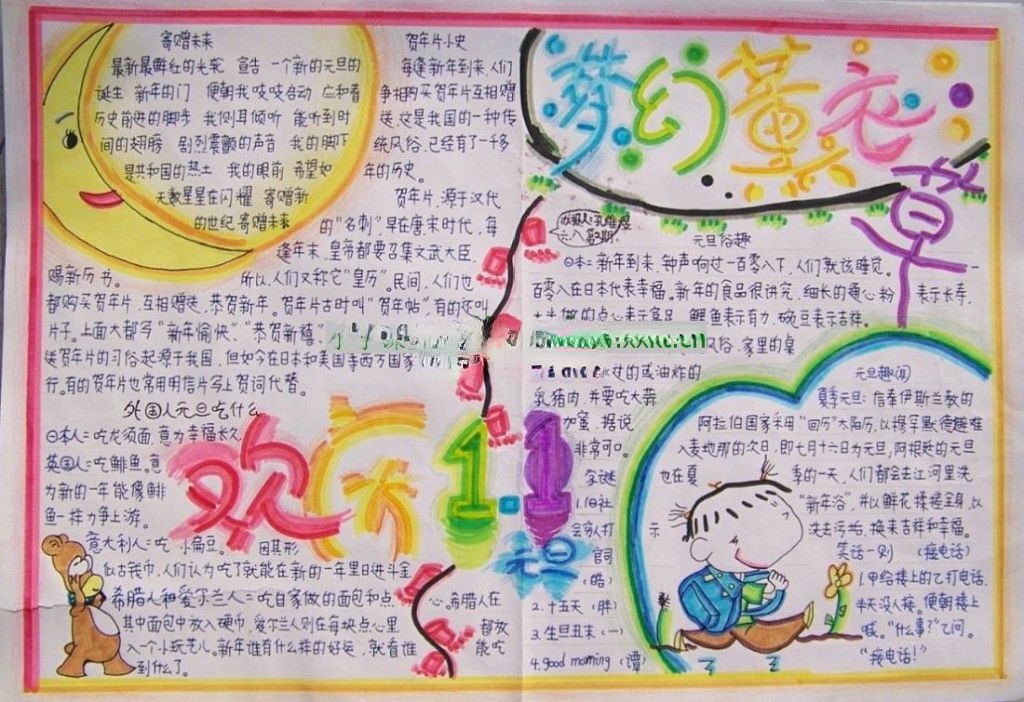 寄赠未来
最新最鲜红的光轮 宣告 一个新的元旦的
诞生 新年的门 便朝我吱吱启动 应和着
历史前进的脚步 我侧耳倾听 能听到时
间的翅膀 剧烈震颤的声音 我的脚下
是共和国的热土 我的眼前 希望如
天数星星在闪耀 寄赠新
的世纪寄赠未来
贺年片小史
每逢新年到来,人们
争相购买贺年片互相赠
送,这是我国的一种传
统风俗,已经有了一千多
年的历史。
贺年片,源于汉代
的"名刺"早在唐宋时代,每
逢年末,皇帝都要召集文武大臣,
赐新历书。 所以,人们又称它"皇历"。民间,人们也
都购买贺年片,互相赠送,恭贺新年。贺年片古时叫"贺年帖",有的还叫
片子。上面大都写"新年愉快"、"恭贺新禧"
送贺年片的习俗起源于我国,但如今在日本和美国等西方国家
行。有的贺年片也常用明信片写上贺词代替。
外国人元旦吃什么
日本人:吃龙须面,意为幸福长久
英国人:吃鲱鱼。意
为新的一年能像鲱
鱼一样力争上游。
意大利人:吃 小扁豆。 因其形
似古钱币,人们认为吃了就能在新的一年里日进斗金
希腊人和爱尔兰人:吃自家做的面包和点 心。希腊人在
其中面包中放入硬币,爱尔兰人则在每块点心里 都放
入一个小玩艺儿。新年谁有什么样的好运,就看谁 能吃
到什么了。
欢乐
1.1
元旦
梦幻薰衣
草
元旦俗趣
日本:新年到来,钟声响过一百零八下,人们就该睡觉。一
百零八在日本代表幸福。新年的食品很讲究,细长的通心粉 表示长寿,
做的点心表示富足 鲤鱼表示有力,碗豆表示吉祥。
风俗,家里的桌
的或油炸的
乳猪肉,并要吃大蒜
加蜜,据说
非常可口。
字谜
1.旧社
会穷人打
官司
(皓)
2.十五天 (胖)
3.生旦丑末 (一)
4.good morning (谭)
元旦趣闻
夏季元旦:信奉伊斯兰教的
阿拉伯国家采用"回历"太阴历,以穆罕默德趣难
入麦地那的次日,即七月十六日为元旦,阿根廷的元旦
也在夏 季的一天,人们都会去江河里洗
"新年浴",并以鲜花揉搓全身,以
示 洗去污垢,换来吉祥和幸福。
笑话一则 (接电话)
1.甲给楼上的乙打电话,
半天没人接。便朝楼上
喊。"什么事?"乙问。
"接电话!"